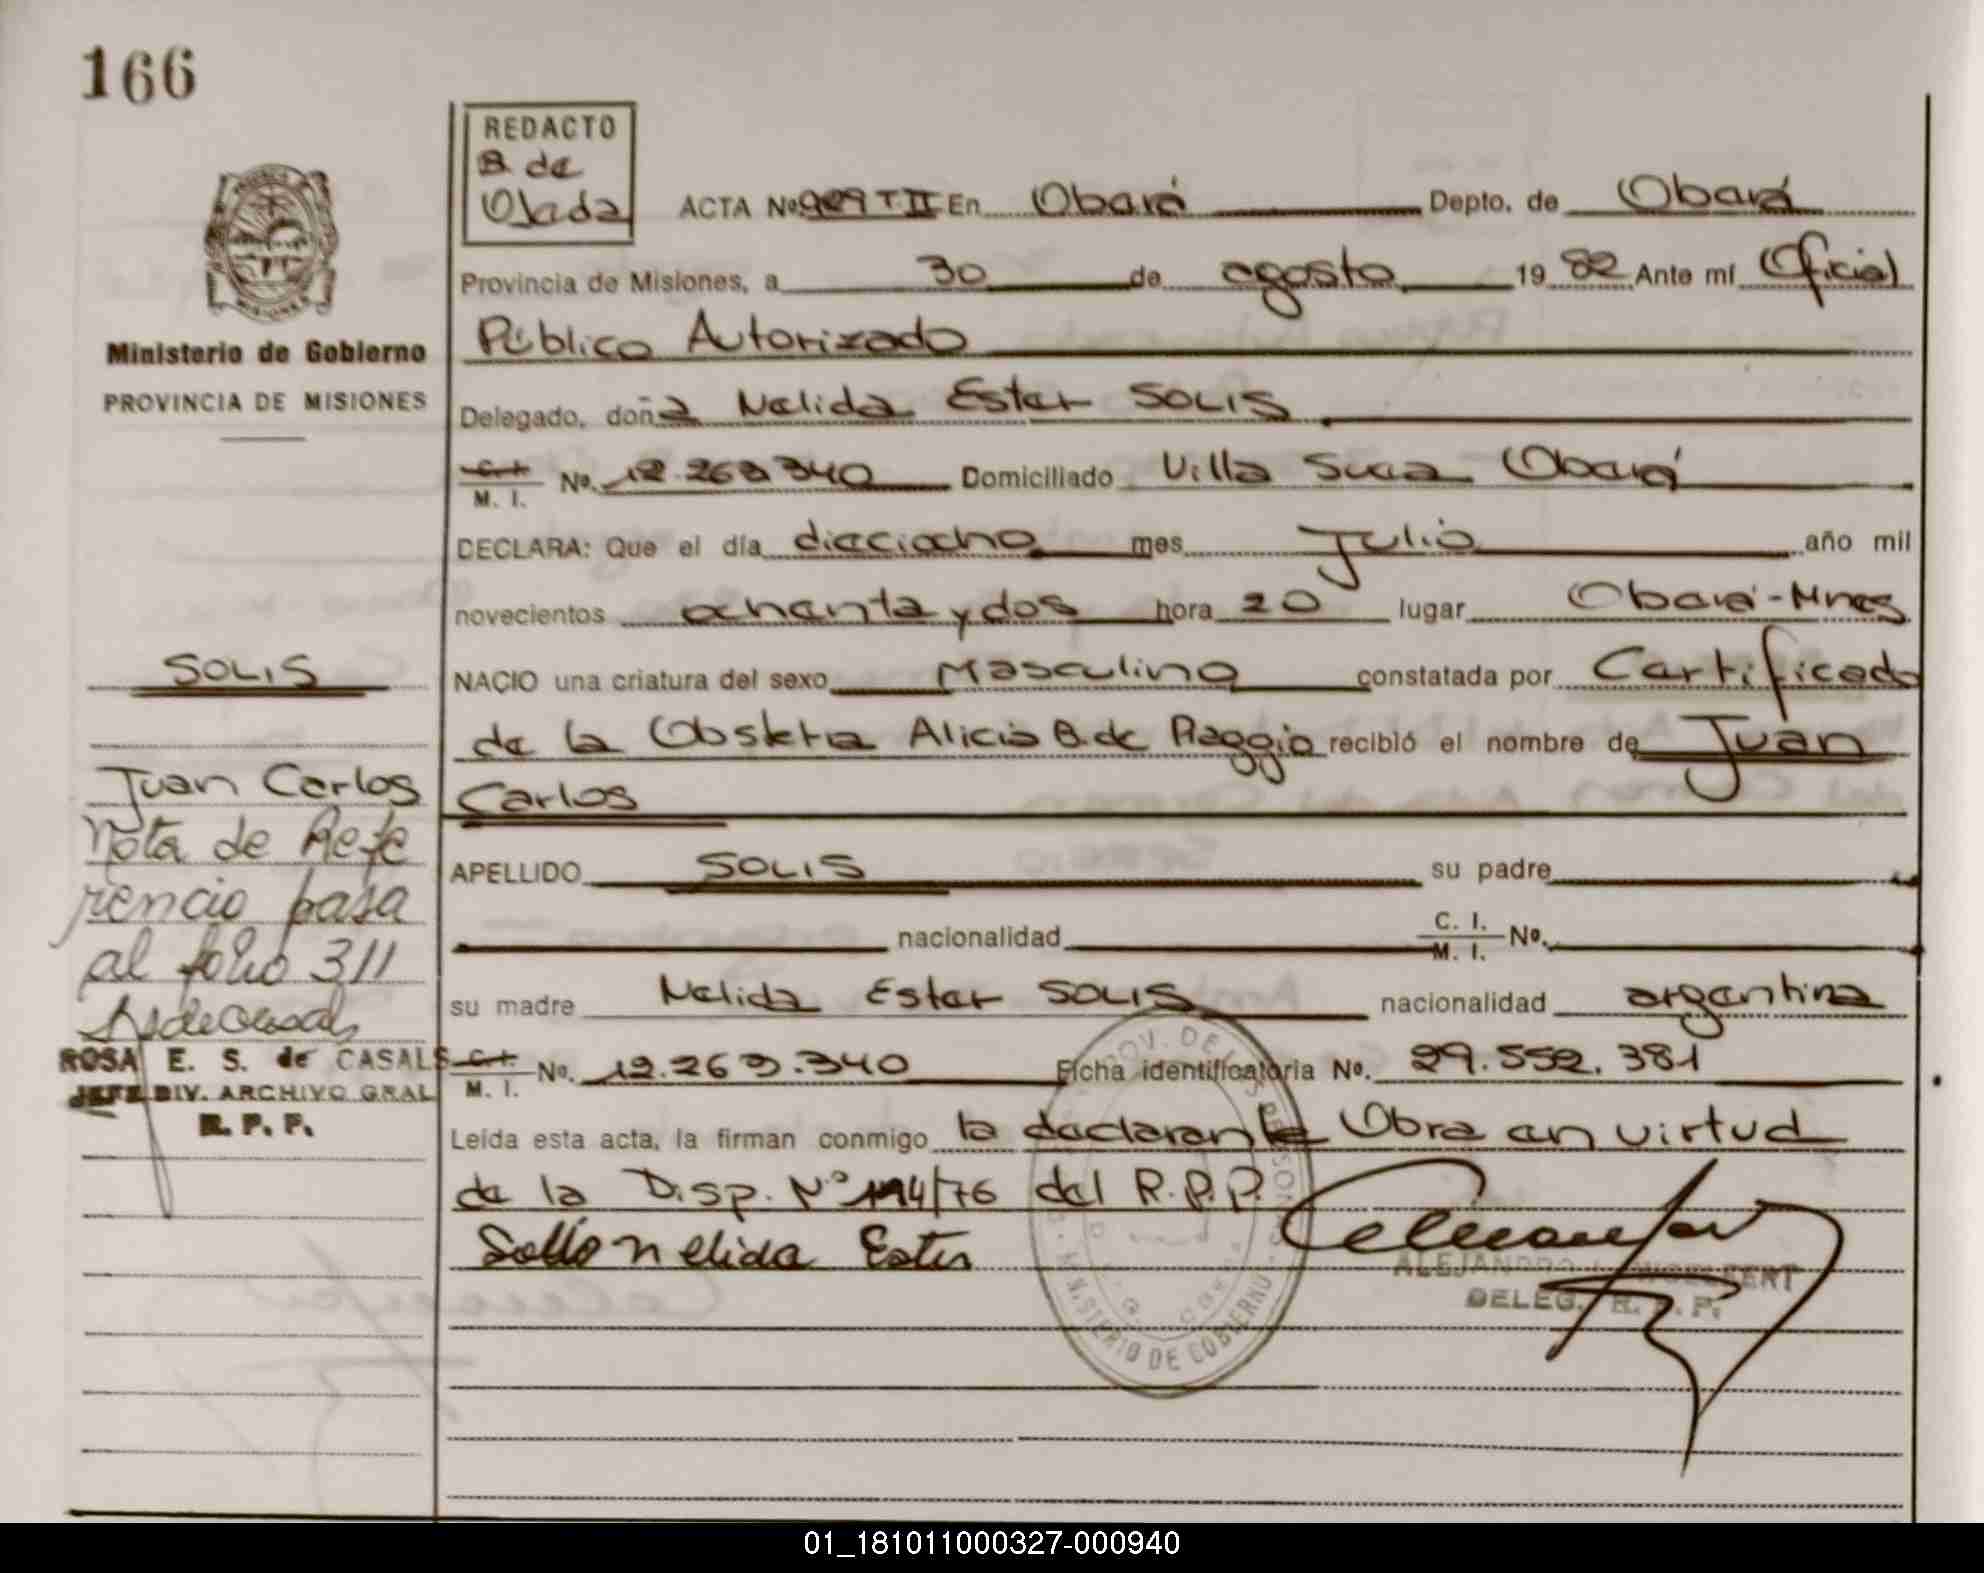 166
REDACTO
B. de
Olada
ACTA Nº 909 T.II En Oberá Depto. de Oberá
Provincia de Misiones, a 30 de agosto 1982 Ante mí Oficial
Ministerio de Gobierno
PROVINCIA DE MISIONES
Público Autorizado
Delegado, doña Nelida Ester SOLIS
C. I.
M. I. Nº. 12.263.340 Domiciliado Villa Oberá
DECLARA: Que el día dieciocho mes Julio año mil
novecientos ochenta y dos hora 20 lugar Oberá-Mnes
NACIO una criatura del sexo Masculino constatada por Certificado
de la Obstetra Alicia B. de Raggio recibió el nombre de Juan
Carlos
SOLIS
Juan Carlos
Nota de Refe
rencia pasa
al folio 311
ROSA E. S. de CASALS
JEFE DIV. ARCHIVO GRAL
R. P. P.
APELLIDO SOLIS su padre
nacionalidad C. I.
M. I. Nº.
su madre Nelida Ester SOLIS nacionalidad argentina
C. I.
M. I. Nº. 12.263.340 Ficha identificatoria Nº. 29.552.381
Leída esta acta, la firman conmigo la declarante Obra en virtud
de la Disp. Nº 114/76 del R.P.P.
Solis Nelida Ester
MINISTERIO DE GOBIERNO
ALEJANDRO
DELEG. R. P. P.
01_181011000327-000940